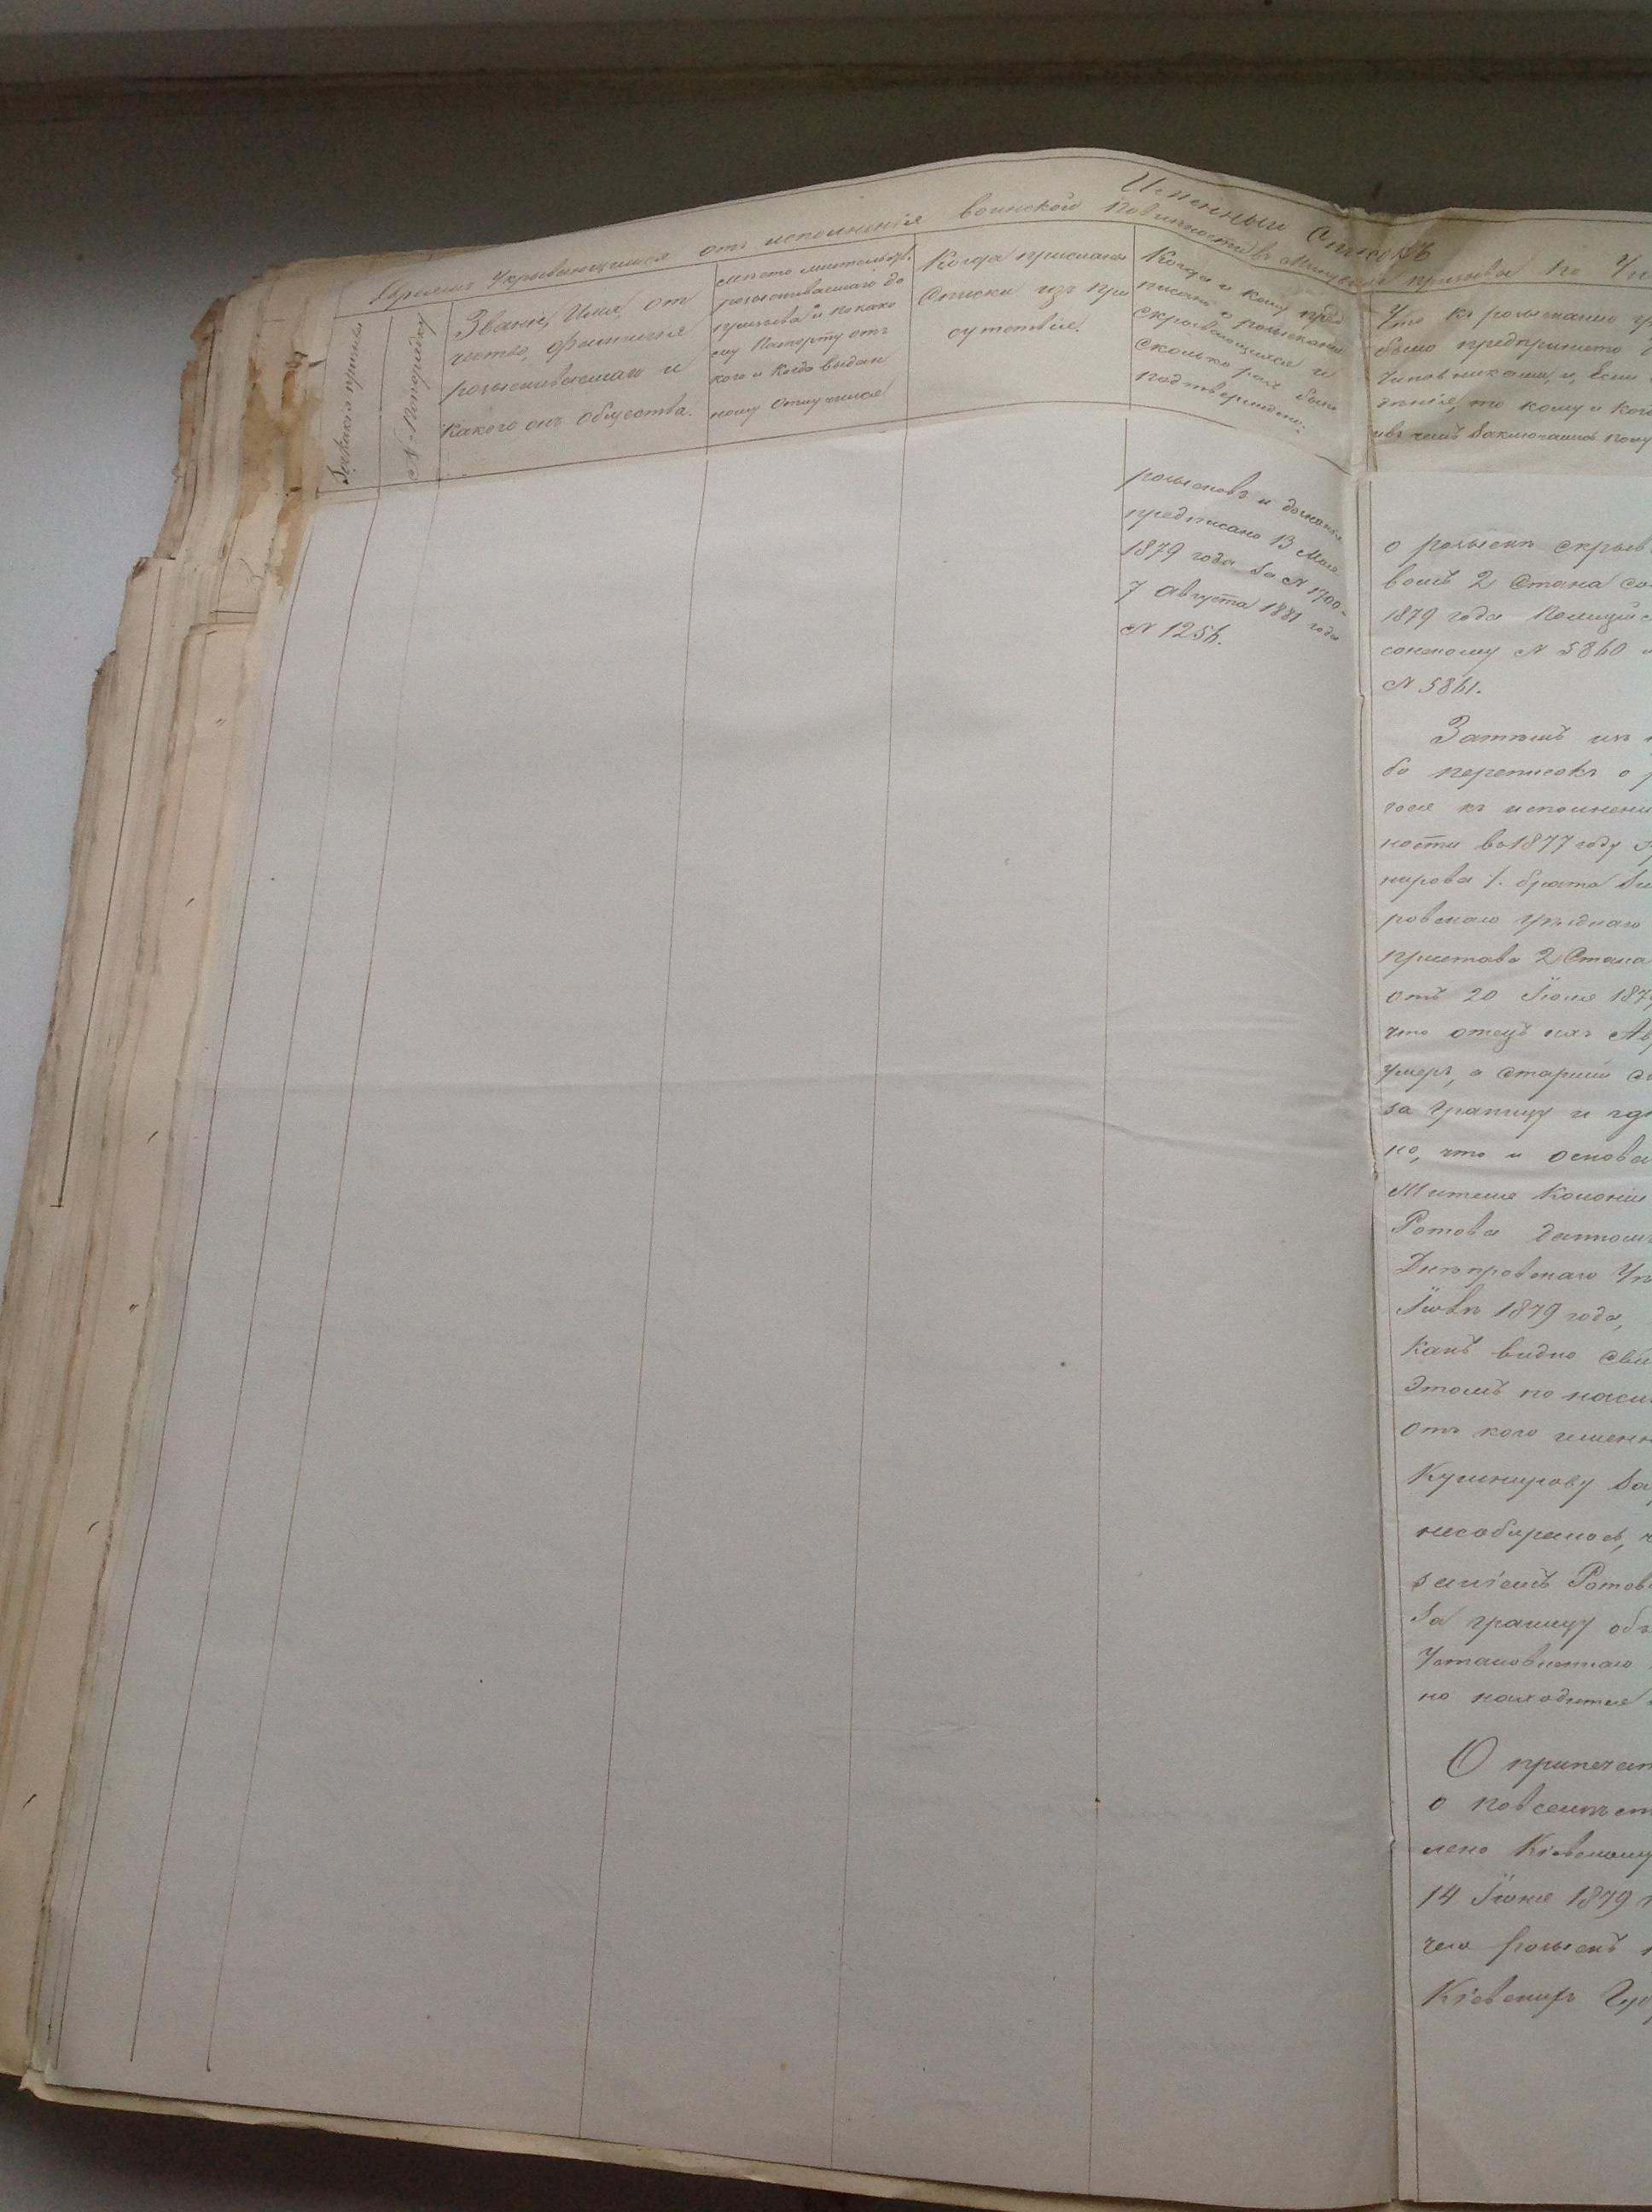 Именный Списокъ
Евреямъ Укрывающимся отъ исполненія воинской повинности въ Минувшіе призывы по
За какія призывы
№ По порядку
Званіе, Имя, от
чество, фамилія
розыскиваемаго и
Какого онъ общества.
мѣсто жительст.
розыскиваемаго до
призыва и по како
му Паспорту отъ
кого и Когда выдан
ному отлучился
Когда присланы
Списки изъ При
сутствія.
Когда и кому пред
писано о розысканіи
скрывающихся и
сколько разъ было
подтверждено.
Что къ розысканію
было предпринято
чиновниками, и, если
то кому и Ког
и въ чемъ заключались
розысковъ и
предписано 13 Мая
1879 года за № 1700
7 Августа 1881 года
№ 1256.
о розыскѣ скрыв
вомъ 2 Стана со
1879 года Полиціи
сонскому № 5860 и
№ 5861.
Затѣмъ изъ
бо перепискъ о
гося къ исполнені
ности въ 1877 году
нирова /. брата
ровскаго уѣзднаго
пристава 2 Стана
отъ 20 Іюня 187
что отецъ ихъ Ав
умеръ, а старшій
за границу и гд
но, что и основа
Жителя Колоніи
Ротова данномъ
Днѣпровскаго Уѣ
Іюлѣ 1879 года,
какъ видно сви
этомъ по насл
отъ кого именн
Кушнирову За
несобиралось,
заніемъ Ротов
За границу объ
Установленнаго
но находится
О припечат
о повсемѣст
лено Кіевскому
14 Іюня 1879 г
чего розыскъ
Кіевскихъ Гу